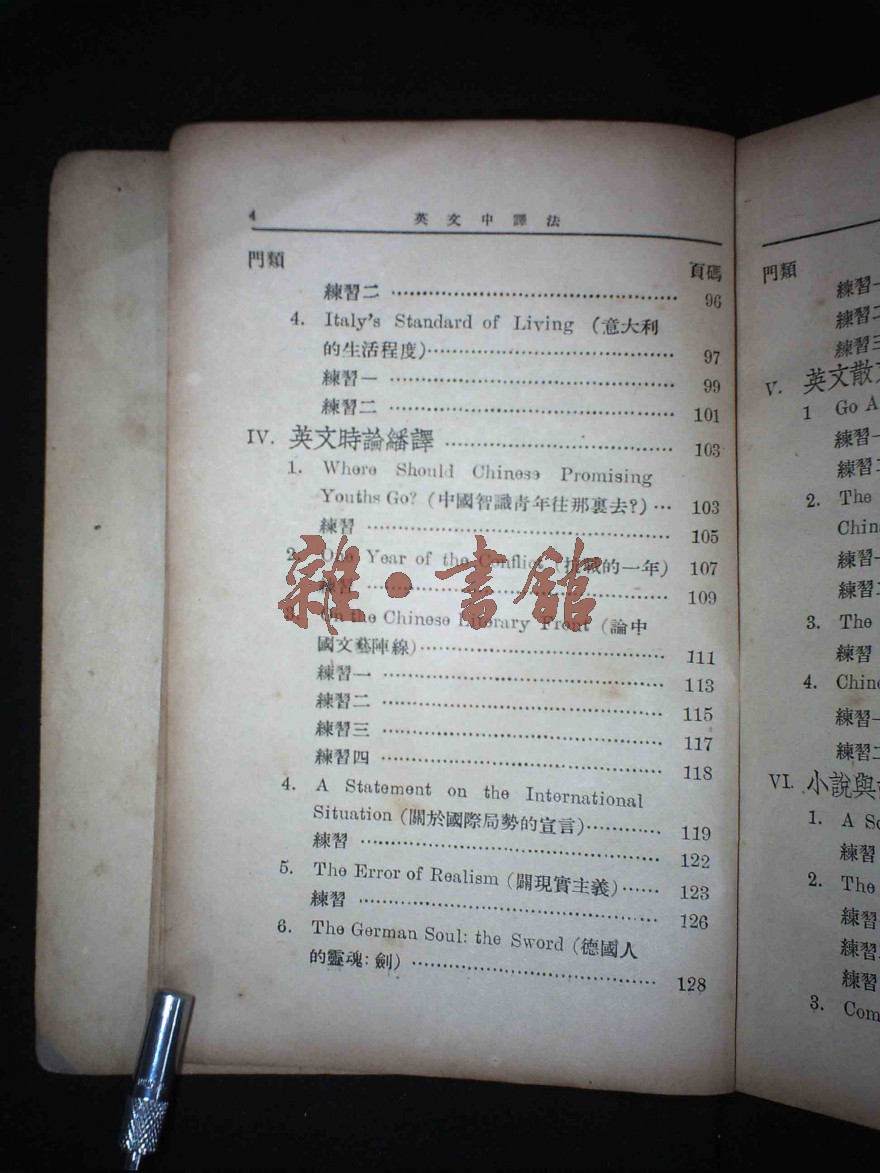 4 英文中譯法
門類 頁碼
練習二 96
4. Italy's Standard of Living (意大利
的生活程度) 97
練習一 99
練習二 101
IV. 英文時論繙譯 103
1. Where Should Chinese Promising
Youths Go? (中國智識青年往那裏去?) 103
練習 105
2. One Year of the Conflict (抗戰的一年) 107
練習 109
3. On the Chinese Literary Front (論中
國文藝陣線) 111
練習一 113
練習二 115
練習三 117
練習四 118
4. A Statement on the International
Situation (關於國際局勢的宣言) 119
練習 122
5. The Error of Realism (闢現實主義) 123
練習 126
6. The German Soul: the Sword (德國人
的靈魂: 劍) 128
雜·書館
門類
練習一
練習二
練習三
V. 英文散文
1 Go A
練習一
練習二
2. The
Chin
練習一
練習二
3. The
練習
4. Chine
練習一
練習二
VI. 小說與
1. A Sc
練習
2. The
練習
練習
練習
3. Com